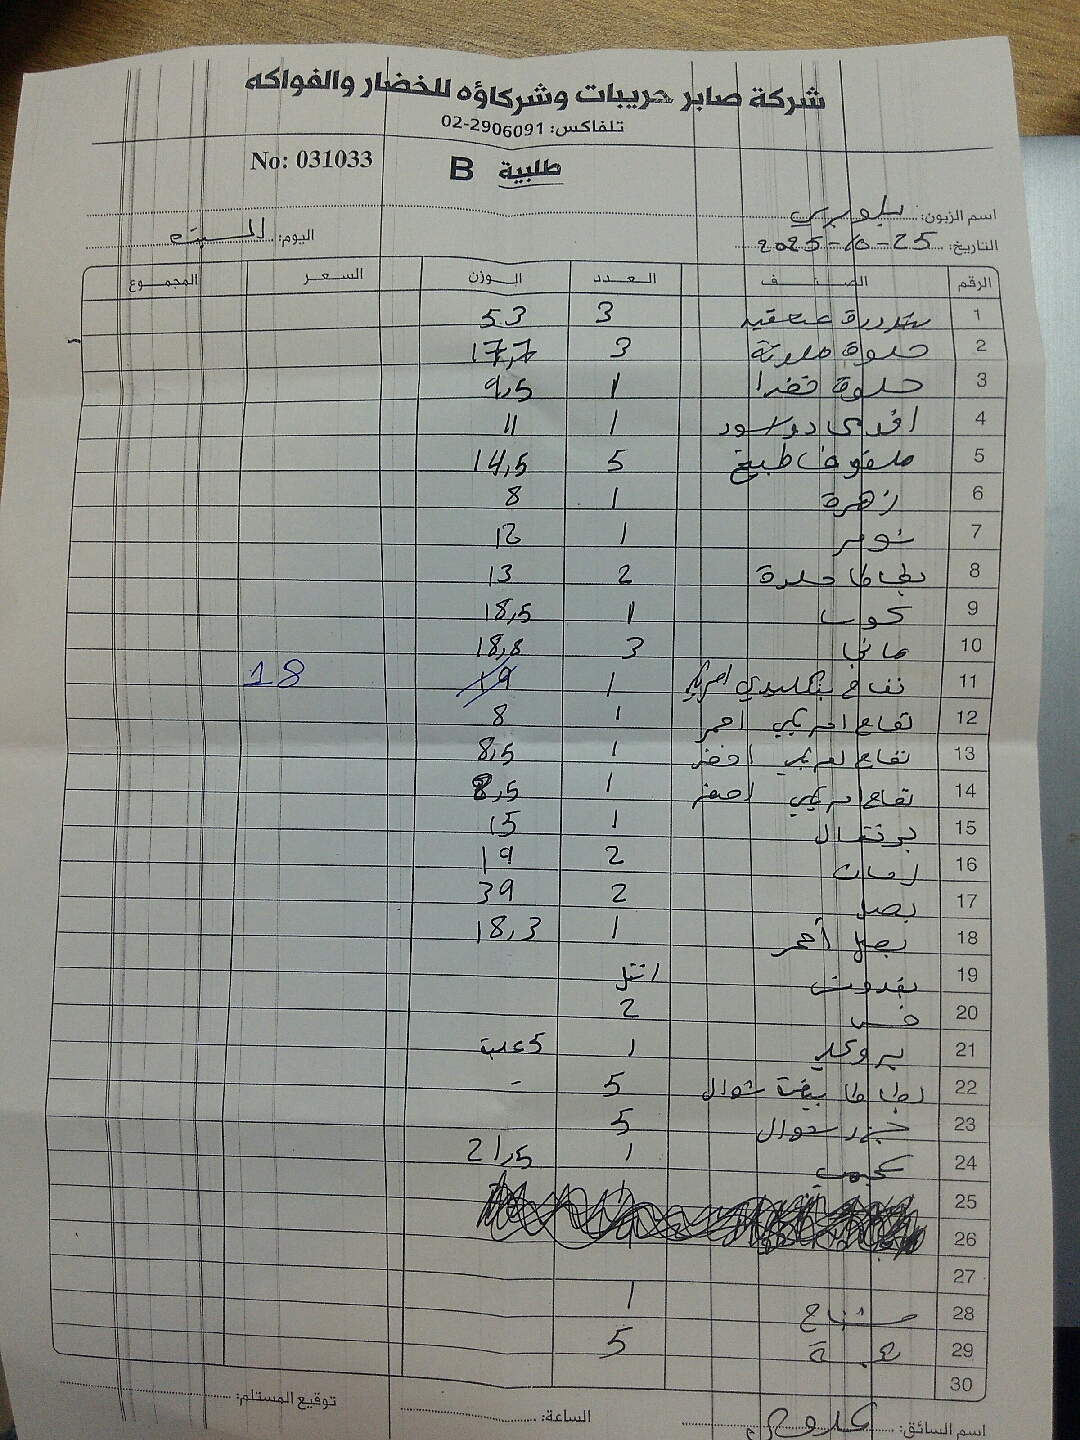 شركة صابر حريبات وشركاؤه للخضار والفواكه
تلفاكس: 02-2906091
No: 031033 طلبية B
اسم الزبون:
اليوم: السبت
التاريخ: 25-10-2025
الرقم الصنف العدد الوزن السعر المجموع
1 بندورة عنقيد 3 53
2 حلوة ملونة 3 17,7
3 حلوة خضرا 1 9,5
4 1 11
5 ملفوف طبيخ 5 14,5
6 زهرة 1 8
7 شومر 1 12
8 بطاطا حلوة 2 13
9 1 18,5
10 3 18,8
11 تفاح 1 19 18
12 تفاح امريكي احمر 1 8
13 تفاح امريكي اخضر 1 8,5
14 تفاح امريكي اصفر 1 8,5
15 برتقال 1 15
16 رمان 2 19
17 بصل 2 39
18 بصل أحمر 1 18,3
19 بقدونس
20 خس 2
21 بروكلي 1 5 علبة
22 بطاطا بيضة شوال 5 -
23 جزر شوال 5
24 1 21,5
25
26
27
28 1
29 5
30
توقيع المستلم:
الساعة:
اسم السائق: